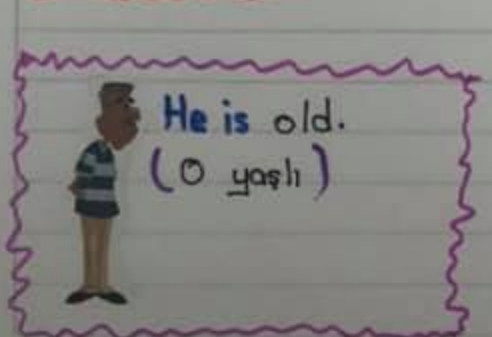 He is old.
(O yaşlı)